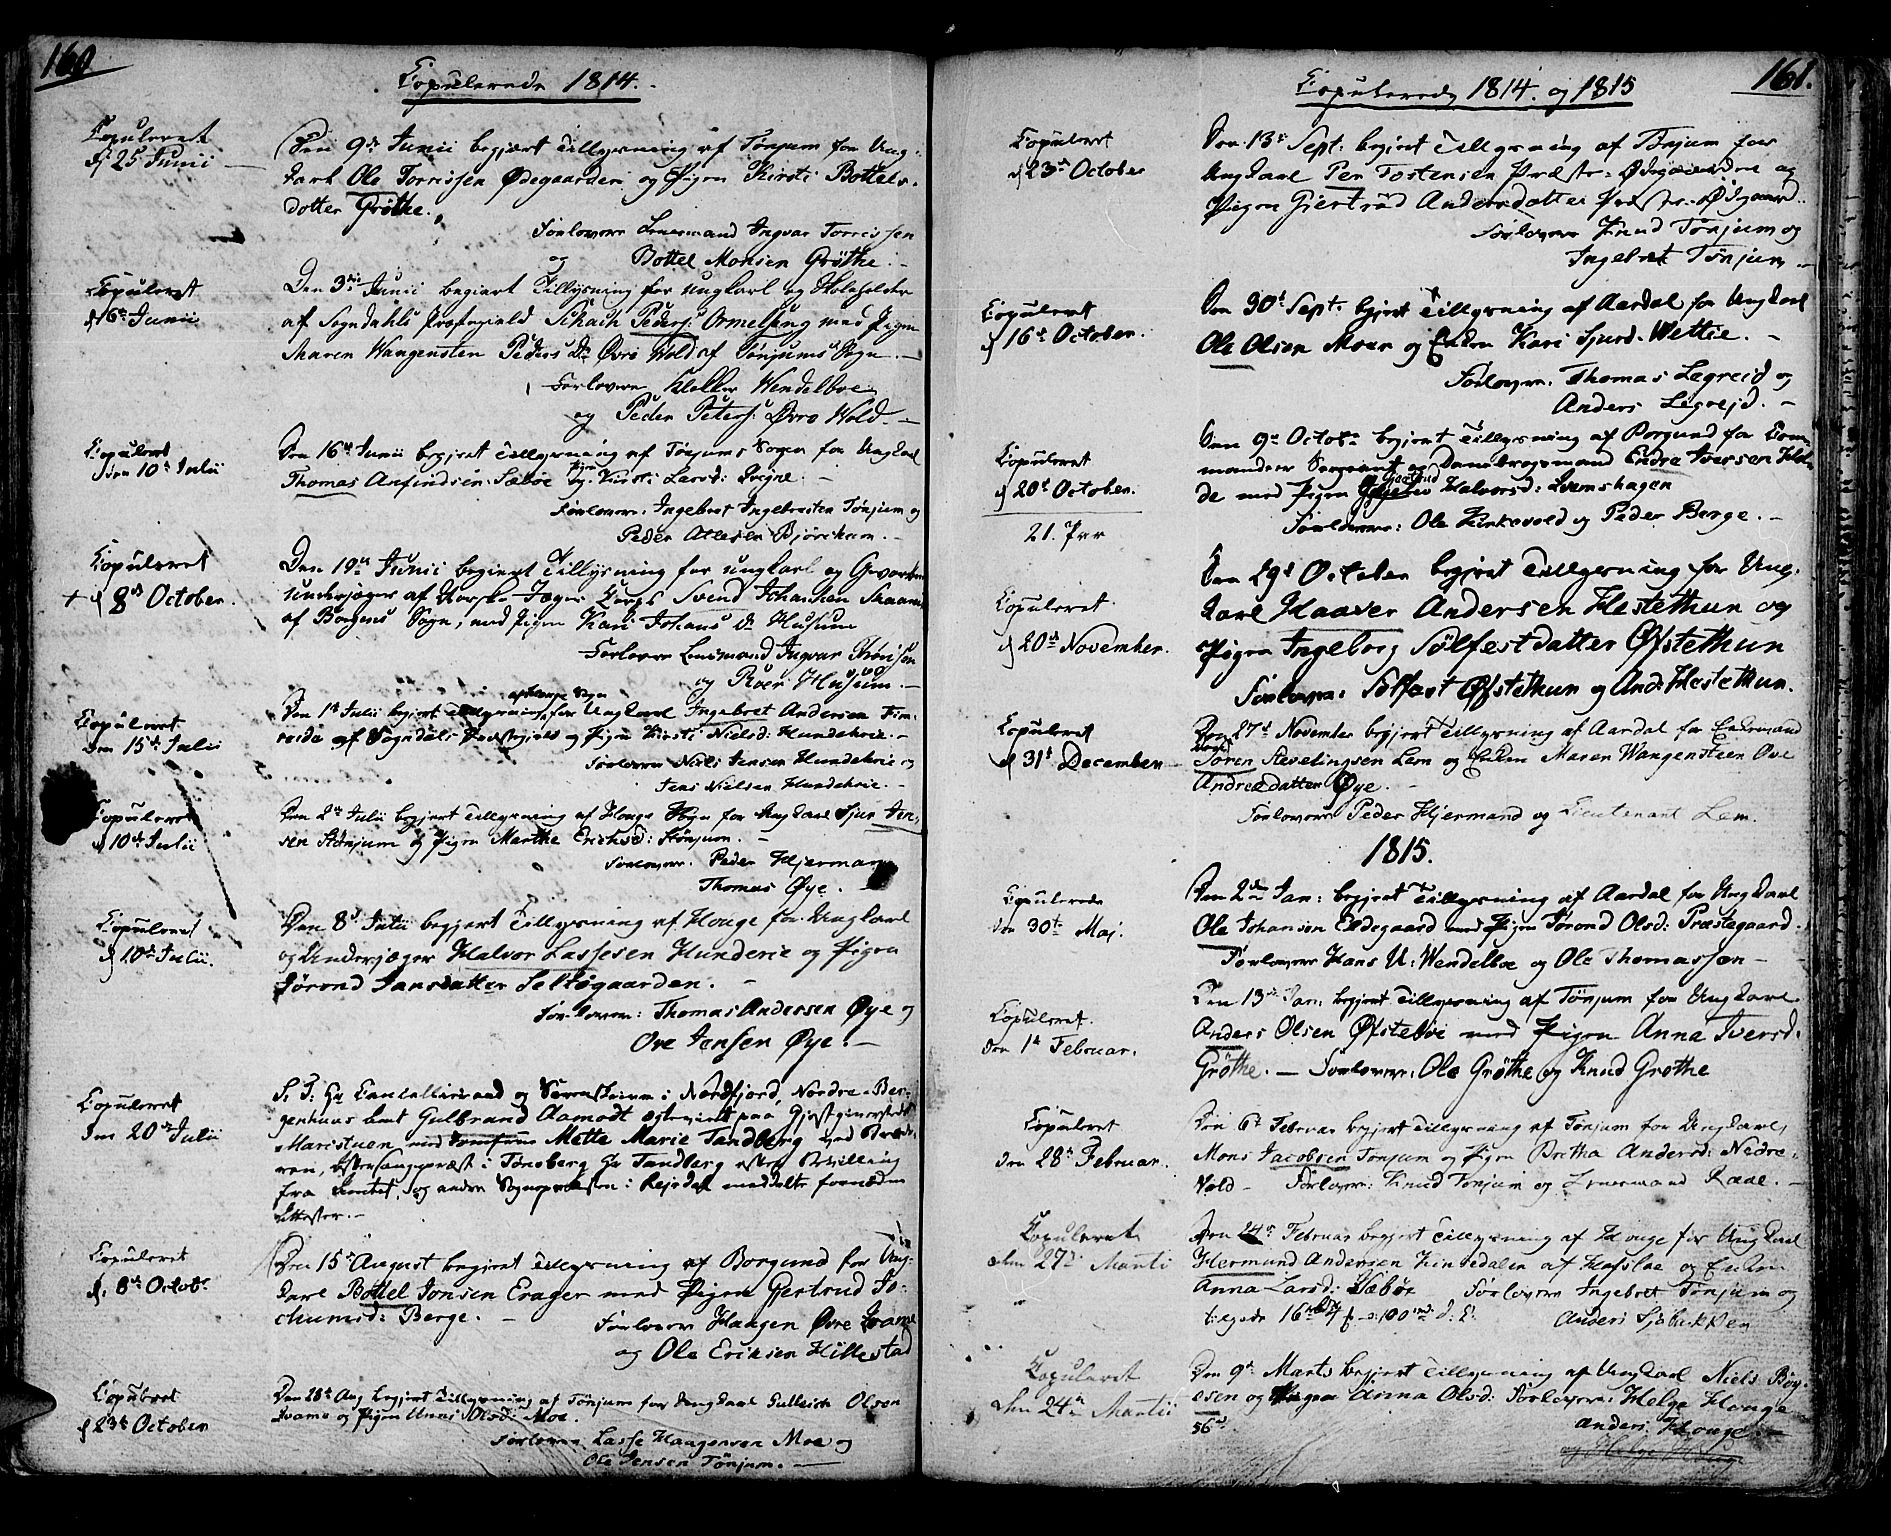 160.
Copulerede 1814.
Copuleret
d 25 Junii
Den 9de Junii begjært Tillysning af Tønjum for Ung-
karl Ole Torrissen Ødegaarden og Pigen Kirsti Bottels-
dotter Grøthe.
Forlovere Lensmand Ingvar Torrissen
og Bottel Monsen Grøthe.
Copuleret
d 6te Junii
Den 3die Junii begiert Tillysning for ungkarl og
af Sogndahls Præstegield Schach Peders: Ormelseng med Pigen
Maren Wangensten Peders Dr Øvre Wold af Tønjums Sogn.
Forlovere Kleller Wendelboe
og Peder Peters: Øvre Wold.
Copuleret
den 10de Julii
Den 16de Junii begjert Tillysning af Tønjums Sogen for Ungkarl
Thomas Anfindsen Sæbøe og Pigen Kirsti Larsd: Qvigne.
Forlovere: Ingebret Ingebretsen Tønjum og
Peder Atlesen Bjørchum.
Copuleret
+ d 8de October.
Den 19de Junii begiert Tillysning for ungkarl og
underjæger af Norske Jæger Corps Svend Johannsen
af Borgens Sogn, med Pigen Kari Johans Dr Husum
Forlovere Lensmand Ingvar
og Roer Husum.
Copuleret
den 15de Julii
Den 1ste Julii begjert Tillysning for Ungkarl Ingebret Andersen Fim-
reide af Sogndals Præstegield og Pigen Kirsti Nielsd: Hundekrie.
Forlovere Niels Jensen Hundekrie og
Jens Nielsen Hundekrie.
Copuleret
d 10de Julii
Den 2de Julii begjert Tillysning af Houge Sogn for Ungkarl Sjur Iver-
sen Tønjum og Pigen Marthe Erichsd: Tønjum.
Forlovere: Peder Hjerman
Thomas Øye.
Copuleret
d 10de Julii.
Den 8de Julii begjert Tillysning af Houge for Ungkarl
og Underjæger Halvor Lassesen Hunderie og Pigen
Jørond Jansdatter Seltøgaarden.
Forlovere: Thomas Andersen Øye og
Ove Jensen Øye.
Copuleret
den 20de Julii
S. T: Hr Cancelliraad og i Nordfjord, Nordre-Ber-
genhuus Amt Gulbrand Aamodt paa
Maristuen med Jomfrue Mette Marie Tandberg ved
ren, i Tønsberg Hr Tandberg efter Bevilling
fra Amtet, og i Lejrdal meddelte fornødne
Attester.
Copuleret
d. 8de Octobr
Den 15de August begjert Tillysning af Borgund for Ung-
karl Bottel Jonsen Erager med Pigen Gertrud Jo-
chumsd: Berge.
Forlovere Haagen Øvre Qvame
og Ole Eriksen Hillestad
Copuleret
d 23de October
Den 28de Aug begjert Tillysning af Tønjum for Ungkarl Gulleick Olsen
Qvame og Pigen Unni Olsd: Moe.
Forlovere Lasse Haagensen Moe og
Ole Jensen Tønjum.
161.
Copulerede 1814. og 1815
Copuleret
d 23de October
Den 13de Sept: begjert Tillysning af Tønjum for
Ungkarl Per Tostensen Præste-Ødegaardene og
Pigen Giertrud Andersdatter Præste-Ødegaard.
Forlovere Knud Tønjum og
Ingebret Tønjum.
Copuleret
d 16de October.
Den 30de Sept: begjert Tillysning af Aardal for Ungkarl
Ole Olsen Moen og Enken Kari Sjurd: Wettie.
Forlovere: Thomas Legreid og
Anders Legrejd.
Copuleret
d 20de October.
21. Par
Den 9de Octobr begjert Tillysning af Borgund for Com-
mandeer Sergeant og Danebrogsmand Endre Iversen
de med Pigen Halvorsd: Qvamshagen
Forlovere: Ole Kirkevold og Peder Berge.
Copuleret
d 20de November.
Den 29de October begjert Tillysning for Ung-
karl Haaver Andersen Hestethun og
Pigen Ingeborg Sølfestdatter Øfstethun
Forlovere: Sølfest Øfstethun og And: Hestethun.
Copuleret
d 31te December
Den 27de November begjert Tillysning af Aardal for Enkemand
Søren Stevelingsen Lem og Enken Maren Wangensteen Ove
Andreadatter Øye.
Forlovere Peder Hjermand og Lieutenant Lem.
1815.
Copulerede
den 30te Maj.
Den 2den Jan: begjert Tillysning af Aardal for Ungkarl
Ole Johansen Eldegaard med Pigen Jørond Olsd: Præstegaard.
Forlovere Hans U: Wendelboe og Ole Thomassen
Copuleret.
den 1ste Februar.
Den 13de Jan: begjert Tillysning af Tønjum for Ungkarl
Anders Olsen Øfstebøe med Pigen Anna Iversd:
Grøthe. Forlovere: Ole Grøthe og Knud Grøthe
Copuleret
den 28de Februar.
Den 6te Februar begjert Tillysning af Tønjum for Ungkarl
Mons Jacobsen Tønjum og Pigen Bretha Andersd: Nedre-
Vold. Forlovere: Knud Tønjum og Lensmand
Copuleret
den 27de Martii
Den 24de Februar begjert Tillysning af Houge for Ungkarl
Hermund Andersen Kinsedalen af Hafsloe og Enken
Anna Larsd: Sæbøe Forlovere Ingebret Tønjum og
Anders
Copuleret
den 24de Martii
Den 9de Marts begjert Tillysning af Ungkarl Niels Bøy-
esen og Pigen Anna Olsd: Forlovere: Helge Houge
Anders Houge
56
og Helge Houge